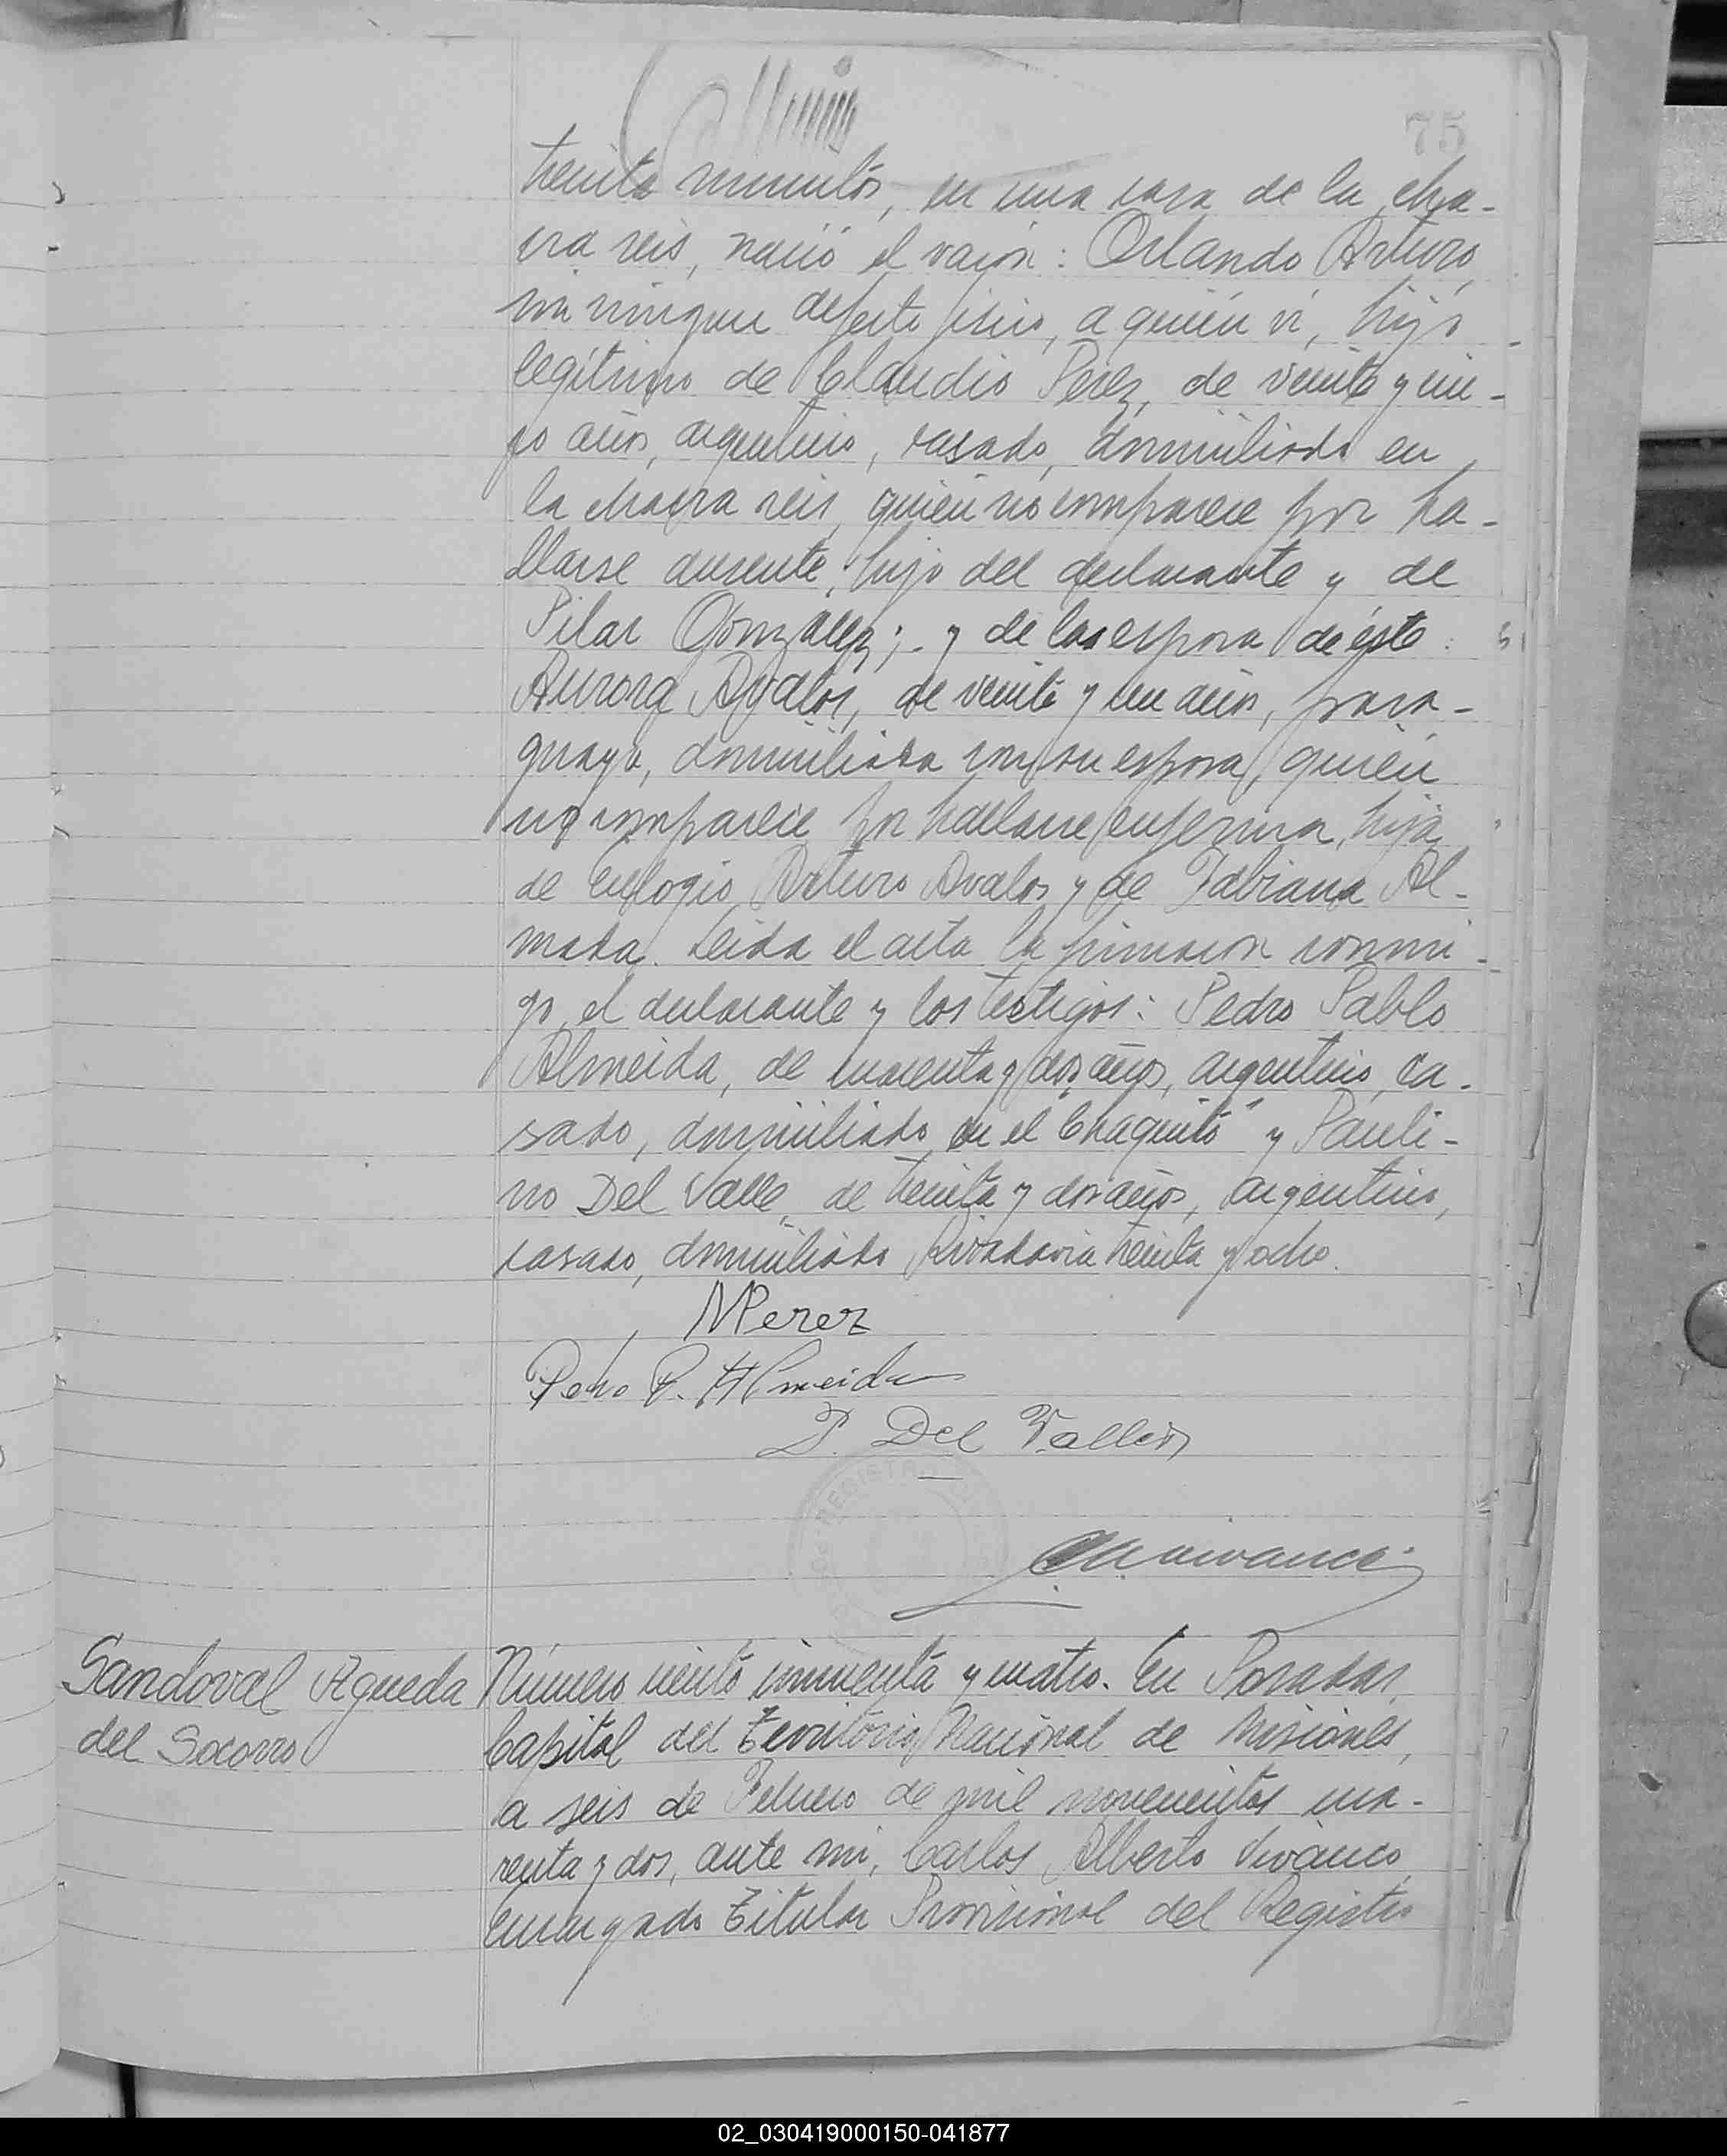 75
treinta minutos, en una casa de la cha-
cra seis, nació el varón: Orlando Arturo,
sin ningun defecto físico, a quién vi, hijo
legítimo de Claudio Perez, de veinte y cin-
co años, argentino, casado, domiciliado en
la chacra seis, quién no comparece por ha-
llarse ausente, hijo del declarante y de
Pilar Gonzalez; y de la esposa de éste:
Aurora Avalos, de veinte y un años, para-
guaya, domiciliada con su esposo, quién
no comparece por hallarse enferma, hija
de Eulogio Arturo Avalos y de Fabiana Al-
mada. Leida el acta la firmaron conmi-
go el declarante y los testigos: Pedro Pablo
Almeida, de cuarenta y dos años, argentino, ca-
sado, domiciliado en el Chaquito" y Pauli-
no Del Valle, de treinta y dos años, argentino,
casado, domiciliado Rivadavia treinta y ocho.
MPerez
Pedro P. Almeida
P. Del Valle
REGISTR
CAVivanco
Sandoval Agueda
del Socorro
Número ciento cincuenta y cuatro. En Posadas,
Capital del Territorio Nacional de Misiones,
a seis de Febrero de mil novecientos cua-
renta y dos, ante mi, Carlos Alberto Vivanco,
Encargado Titular Provisional del Registro
02_030419000150-041877